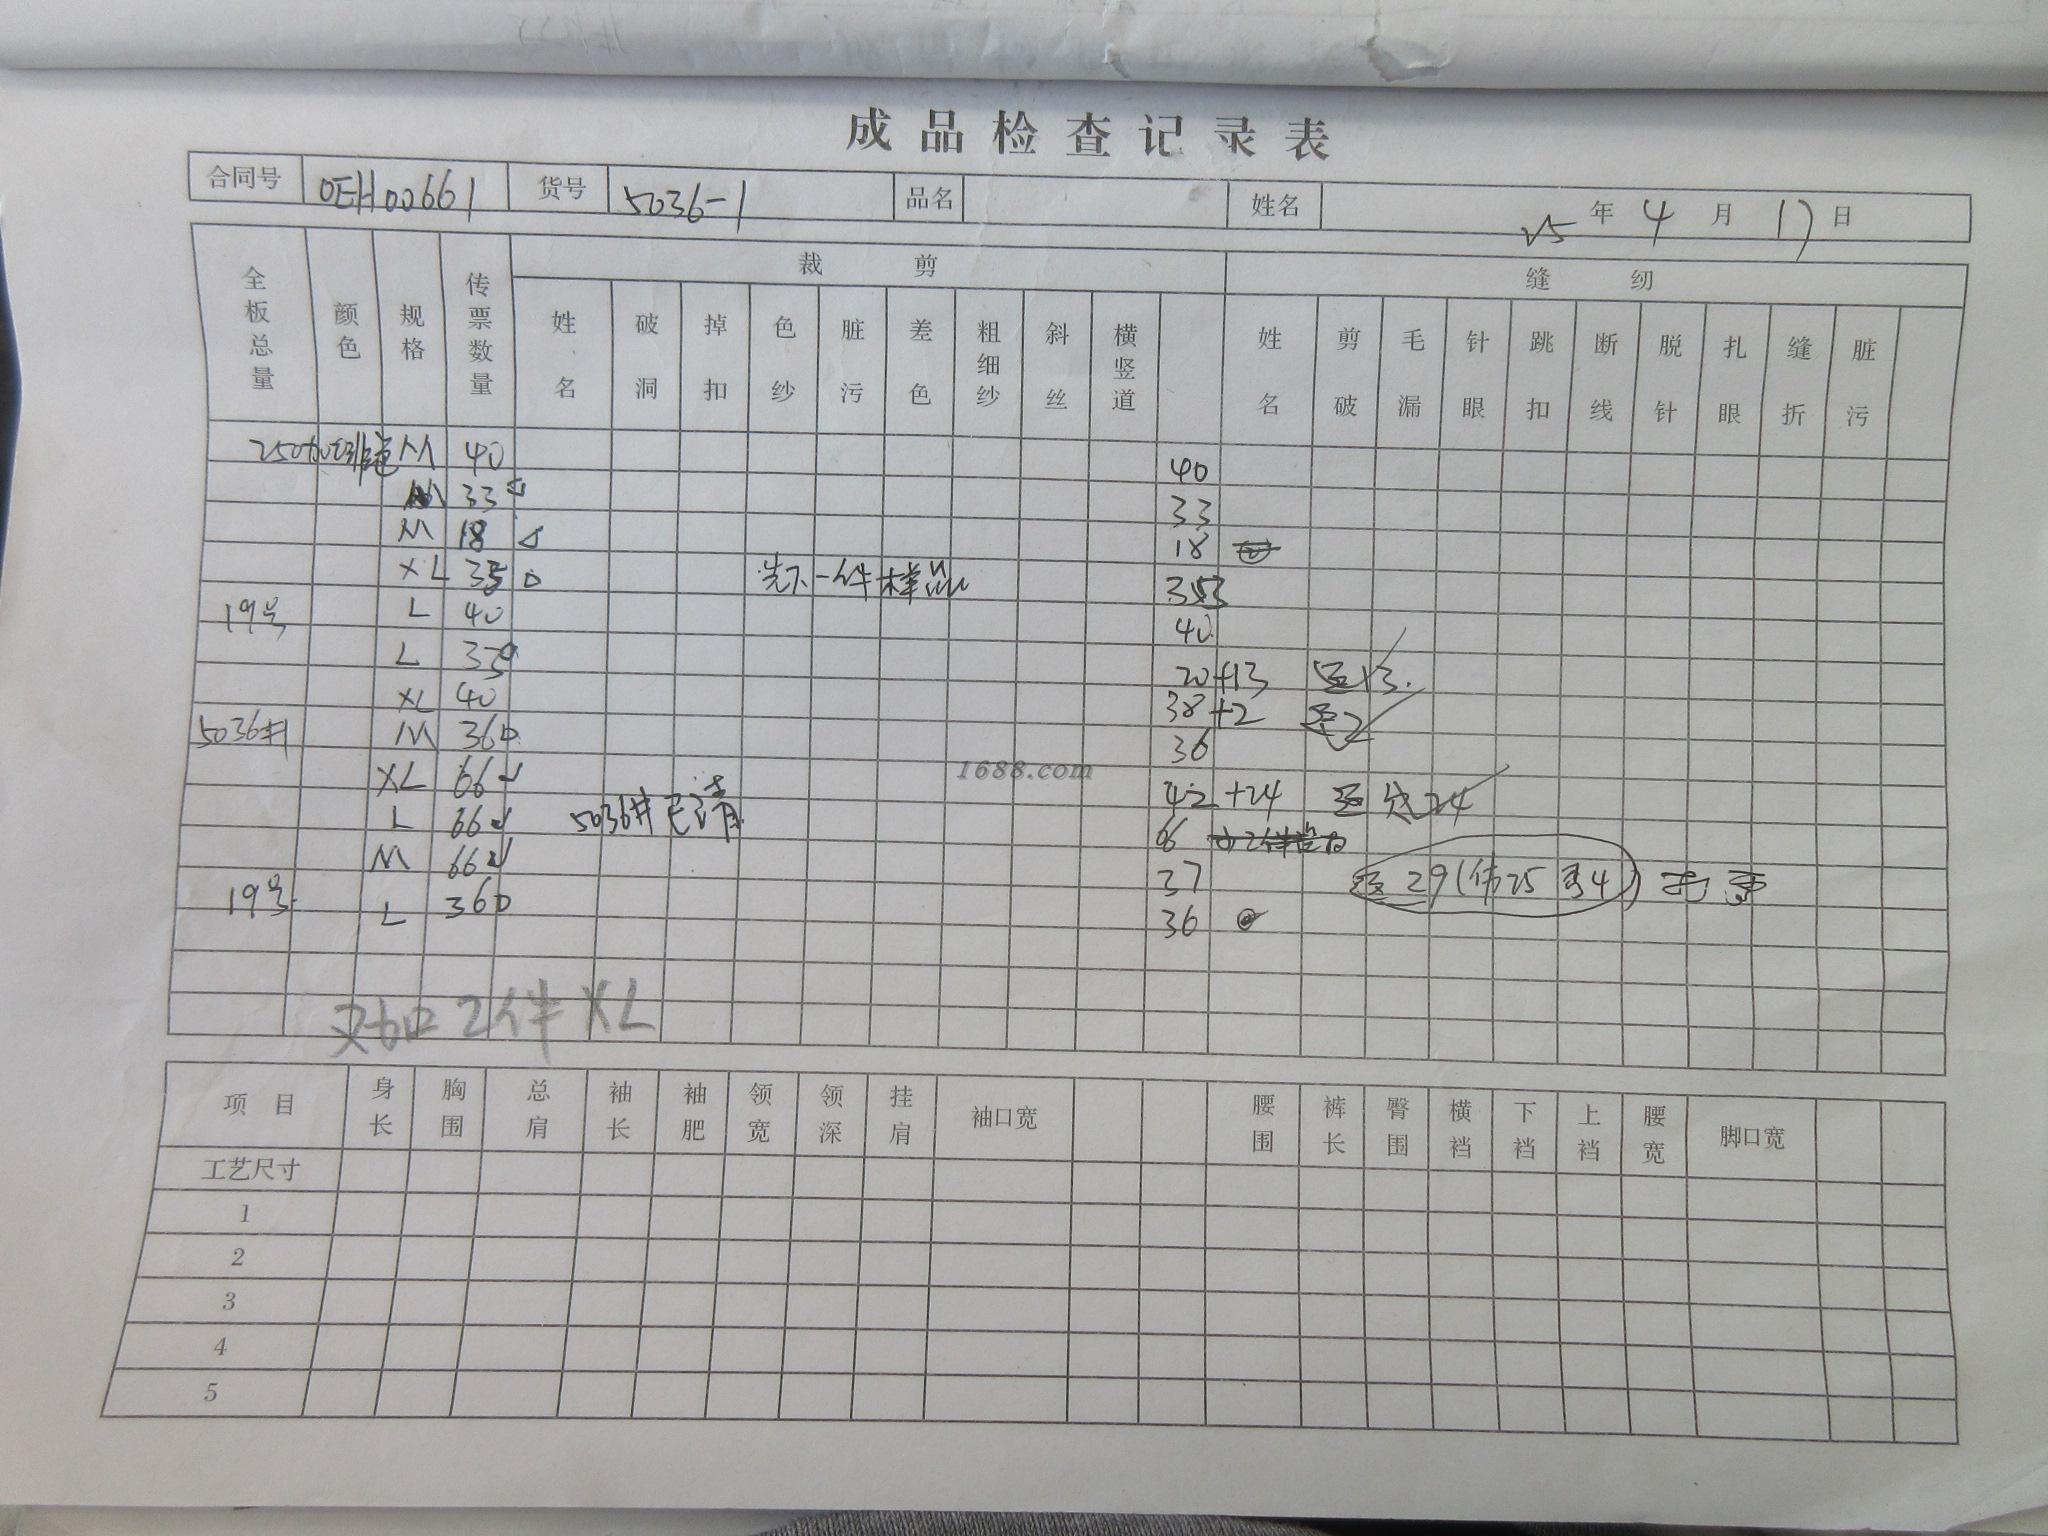 成品检查记录表
合同号 0EH00661 货号 5036-1 品名 姓名 年 4 月 17 日
全板总量 颜色 规格 传票数量 裁剪 缝纫
姓名 破洞 掉扣 色纱 脏污 差色 粗细纱 斜丝 横竖道 姓名 剪破 毛漏 针眼 跳扣 断线 脱针 扎眼 缝折 脏污
M 40 40
M 33 33
M 18 18
XL 35 一件样品
19号 L 40 40
L 35 20+13
XL 40 38+2
5036# M 36 36
XL 66 42 +24
L 66 5036# 已清 66
M 66 37 29
19号 L 36 36
又加2件XL
1688.com
项目 身长 胸围 总肩 袖长 袖肥 领宽 领深 挂肩 袖口宽 腰围 裤长 臀围 横裆 下裆 上裆 腰宽 脚口宽
工艺尺寸
1
2
3
4
5